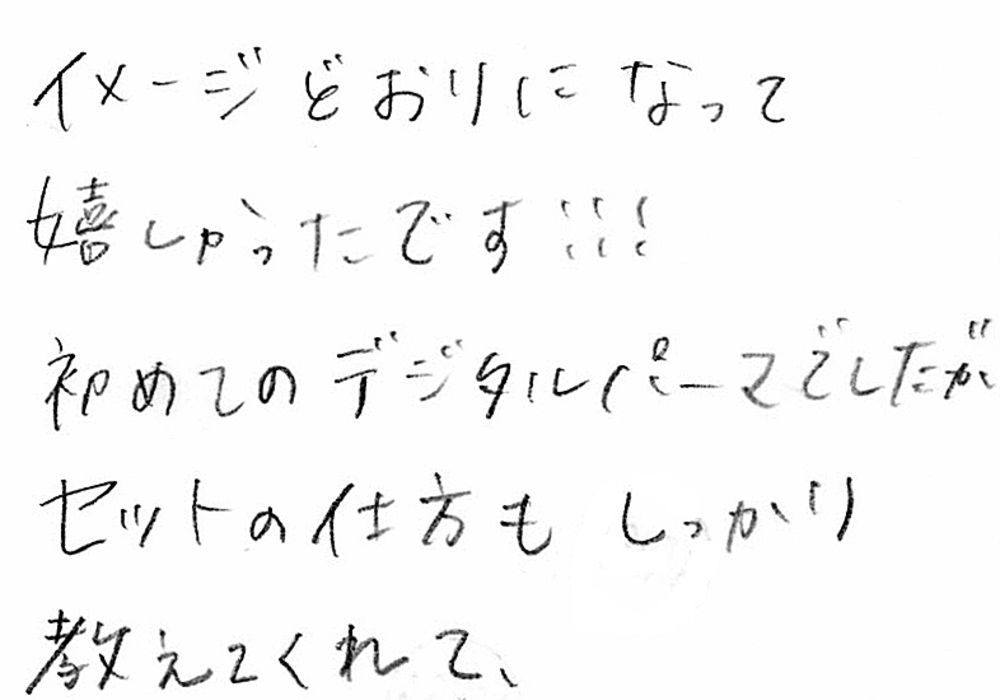 イメージどおりになって
嬉しかったです!!!
初めてのデジタルパーマでしたが
セットの仕方もしっかり
教えてくれて、